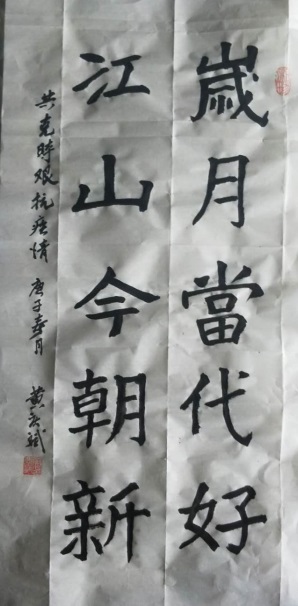 歲月當代好
江山今朝新
共克時艰抗疫情 庚子春月 黄